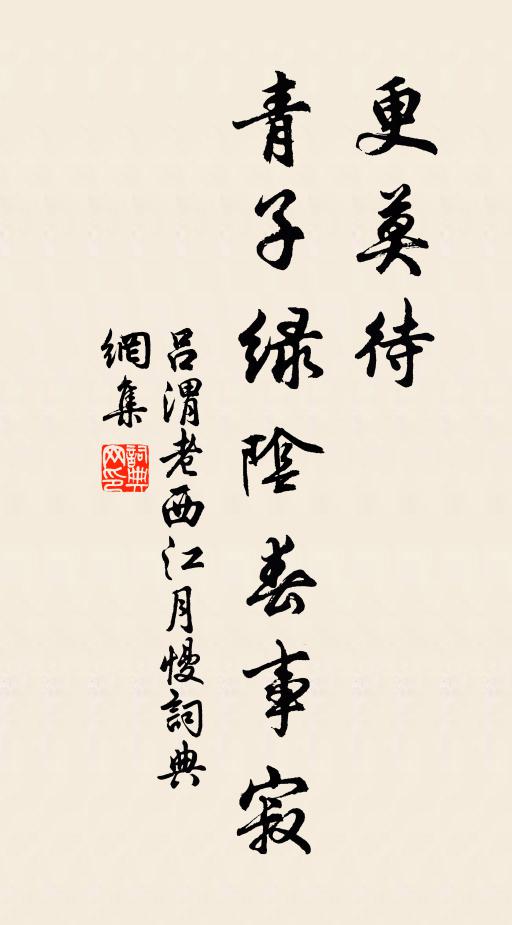 更莫待
青子綠陰春事寂
呂渭老西江月慢詞典
網集
詞典網印